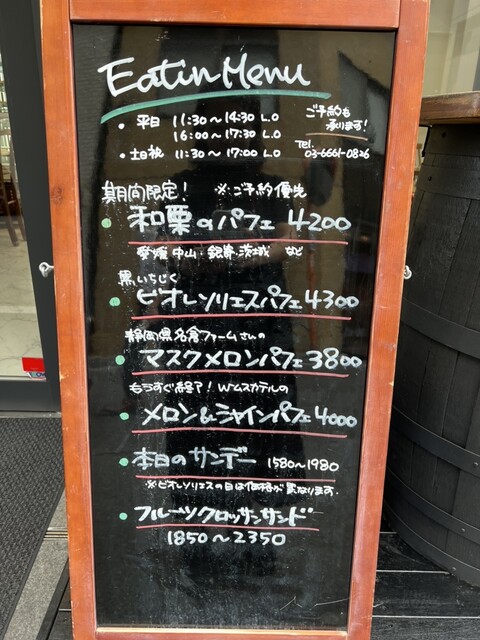 Eatin Menu
・平日 11:30～14:30 L.O
16:00～17:30 L.O
・土日祝 11:30～17:00 L.O
ご予約も
承ります!
Tel.
03-6661-0826
期間限定! ※ご予約優先
・和栗のパフェ 4200
愛媛 中山・銀寄・茨城 など
黒いちじく
・ビオレソリエスパフェ 4300
静岡県名倉ファームさんの
・マスクメロンパフェ 3800
もうすぐ終了! W.ムスカテルの
・メロン&シャインパフェ 4000
・本日のサンデー 1580～1980
※ビオレソリエスの日は価格が異なります.
・フルーツクロッサンサンド
1850～2350